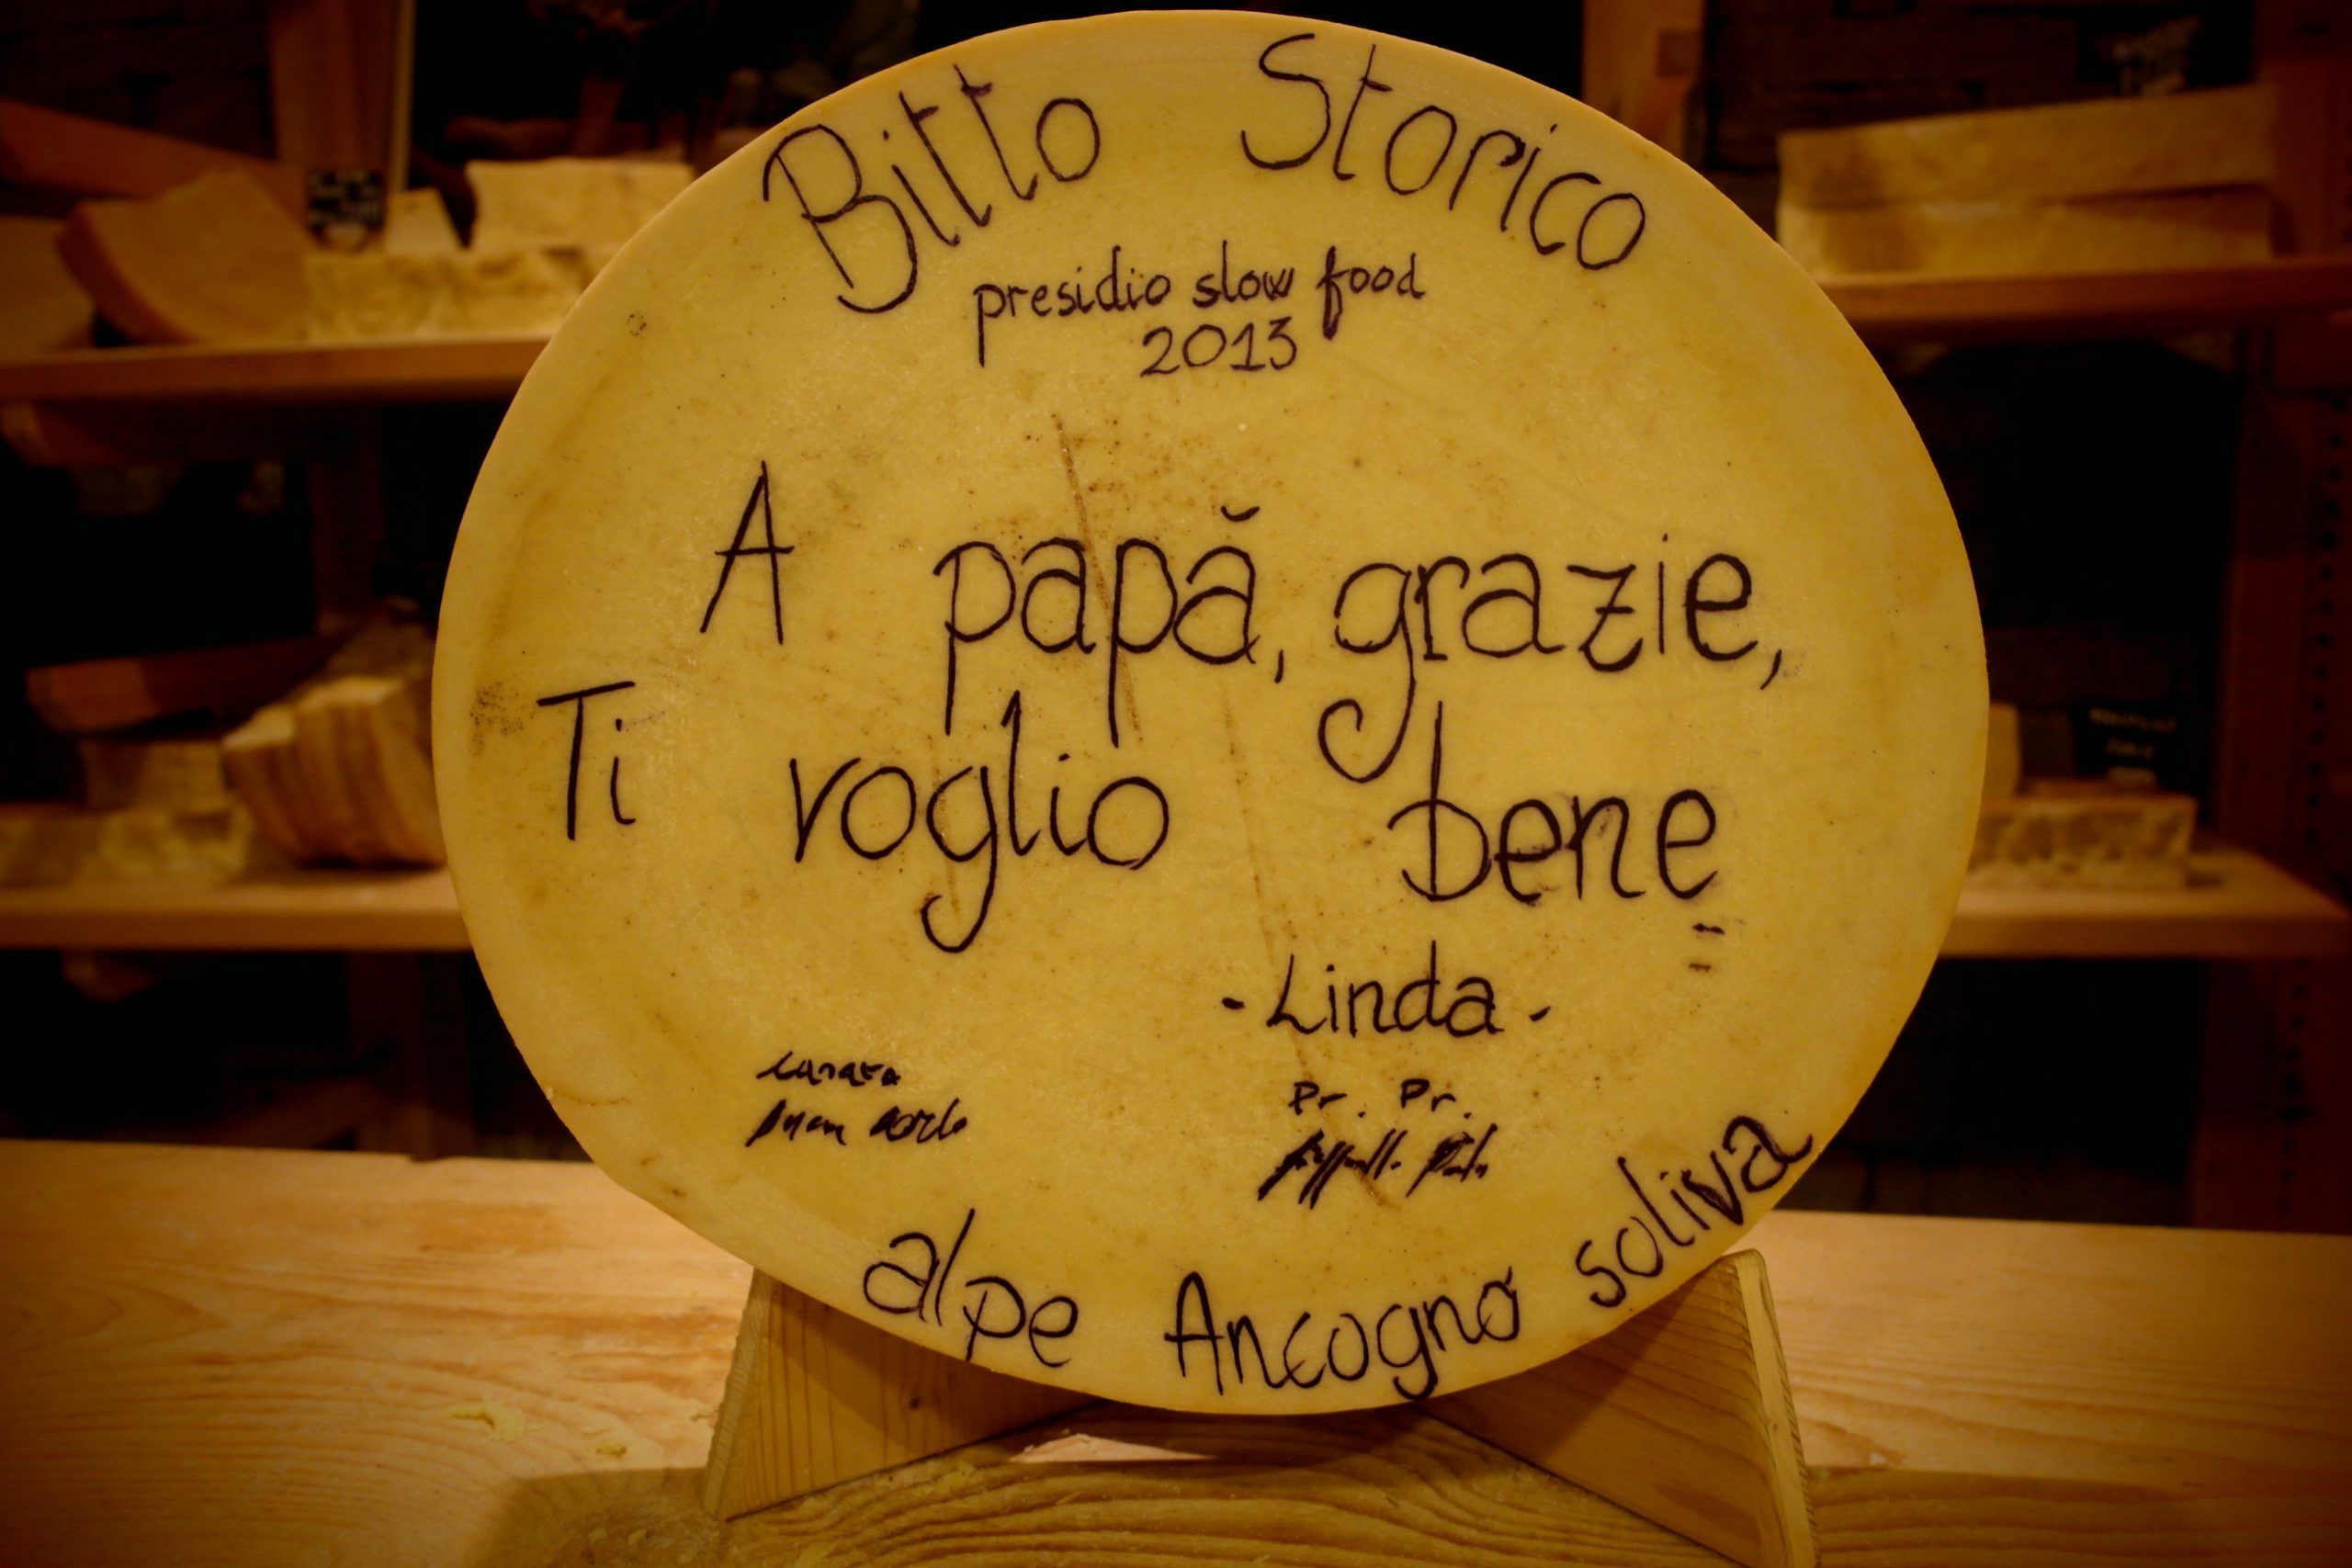 Bitto Storico
presidio slow food
2013
A papă, grazie,
Ti voglio bene
-Linda-
Pr. Pr.
alpe Ancogno soliva